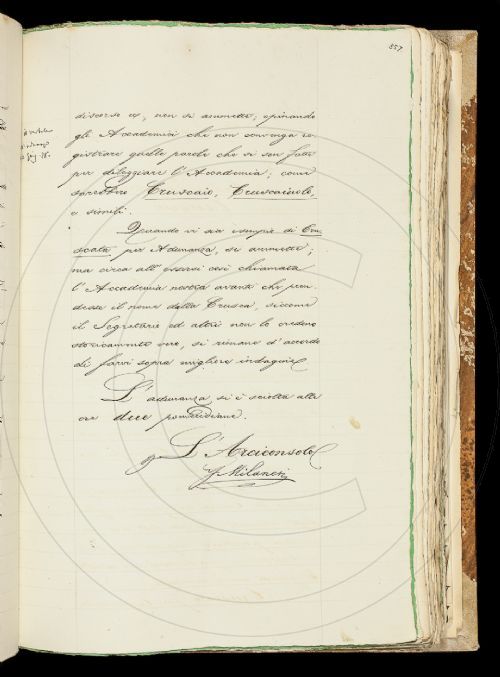 857
discorso ec, non si ammette; opinando
gli Accademici che non convenga re
gistrare quelle parole che si son fatte
per dileggiare l'Accademia; come
sarebbero Cruscaio, Cruscaiolo,
e simili.
Quando vi sia esempio di Cru
scata per Adunanza, si ammette;
ma circa all'essersi così chiamata
l'Accademia nostra avanti che pren
desse il nome della Crusca, siccome
il Segretario ed altri non lo credono
storicamente vero, si rimane d'accordo
di farvi sopra migliore indagine.
L'adunanza si è sciolta alle
ore due pomeridiane.
L'Arciconsolo
Milanesi